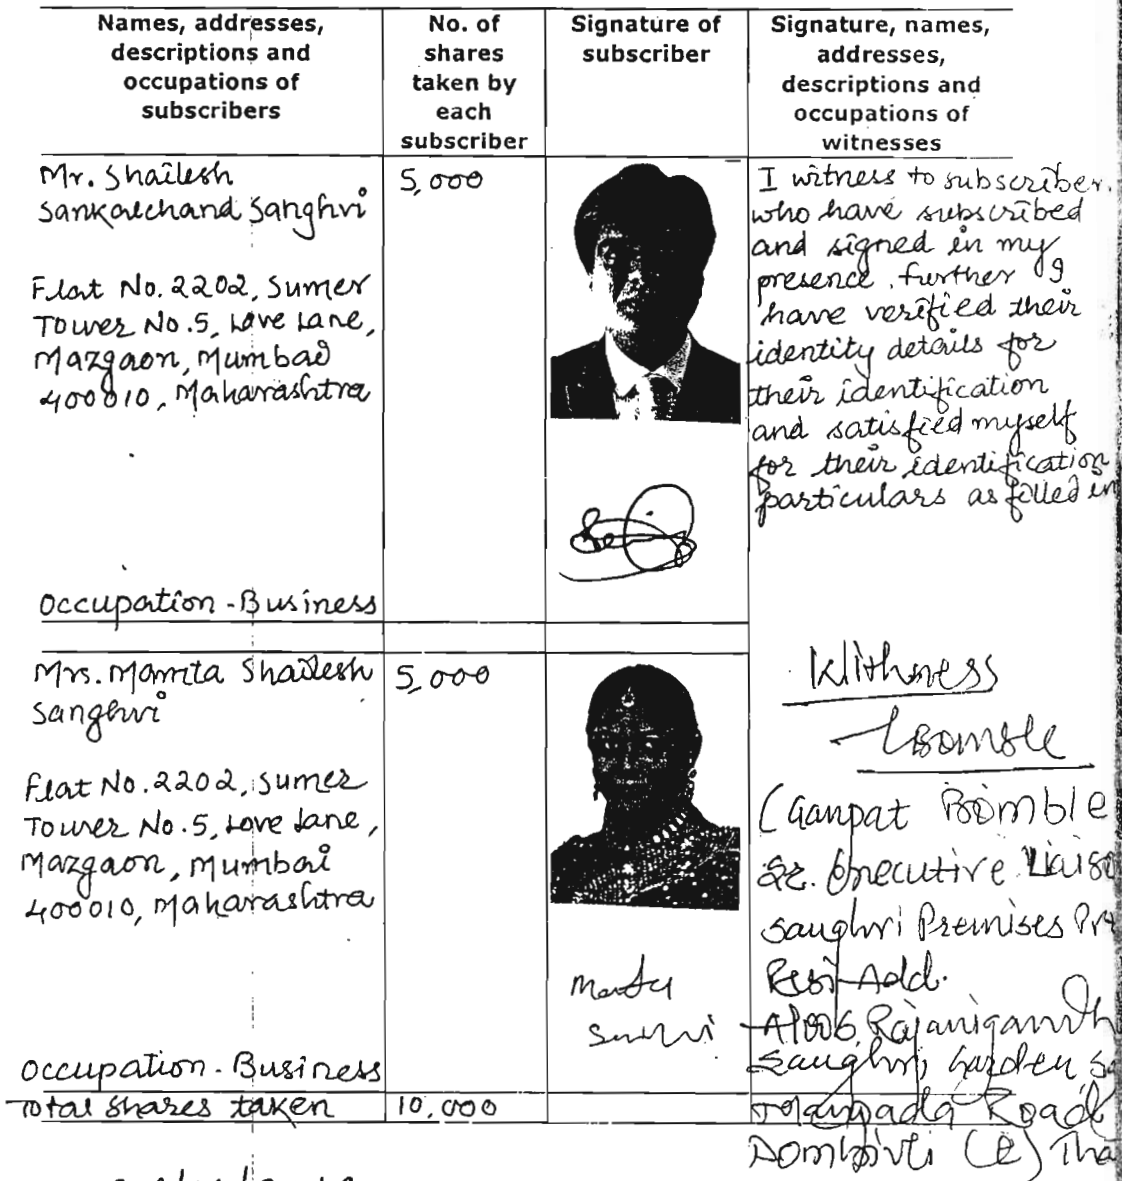 Names, addresses,
descriptions and
occupations of
subscribers
No. of
shares
taken by
each
subscriber
Signature of
subscriber
Signature, names,
addresses,
descriptions and
occupations of
witnesses
Mr. Shailesh
Sankalchand Sanghvi
Flat No. 2202, Sumer
Tower No. 5, Love Lane,
Mazgaon, Mumbai
400010, Maharashtra
Occupation - Business
5,000
I witness to subscriber.
who have subscribed
and signed in my
presence. further I
have verified their
identity details for
their identification
and satisfied myself
for their identification
particulars as filled in
Mrs. Mamta Shailesh
Sanghvi
Flat No. 2202, Sumer
Tower No. 5, Love Lane,
Mazgaon, Mumbai
400010, Maharashtra
Occupation - Business
5,000
Mamta
(Ganpat Bomble
Sr. Executive Liaiso
Sanghvi Premises
Resi Add.
A/006, Rajanigandh
Sanghvi Garden
Manpada Road
Dombivli (E) Tha
Total shares taken
10,000